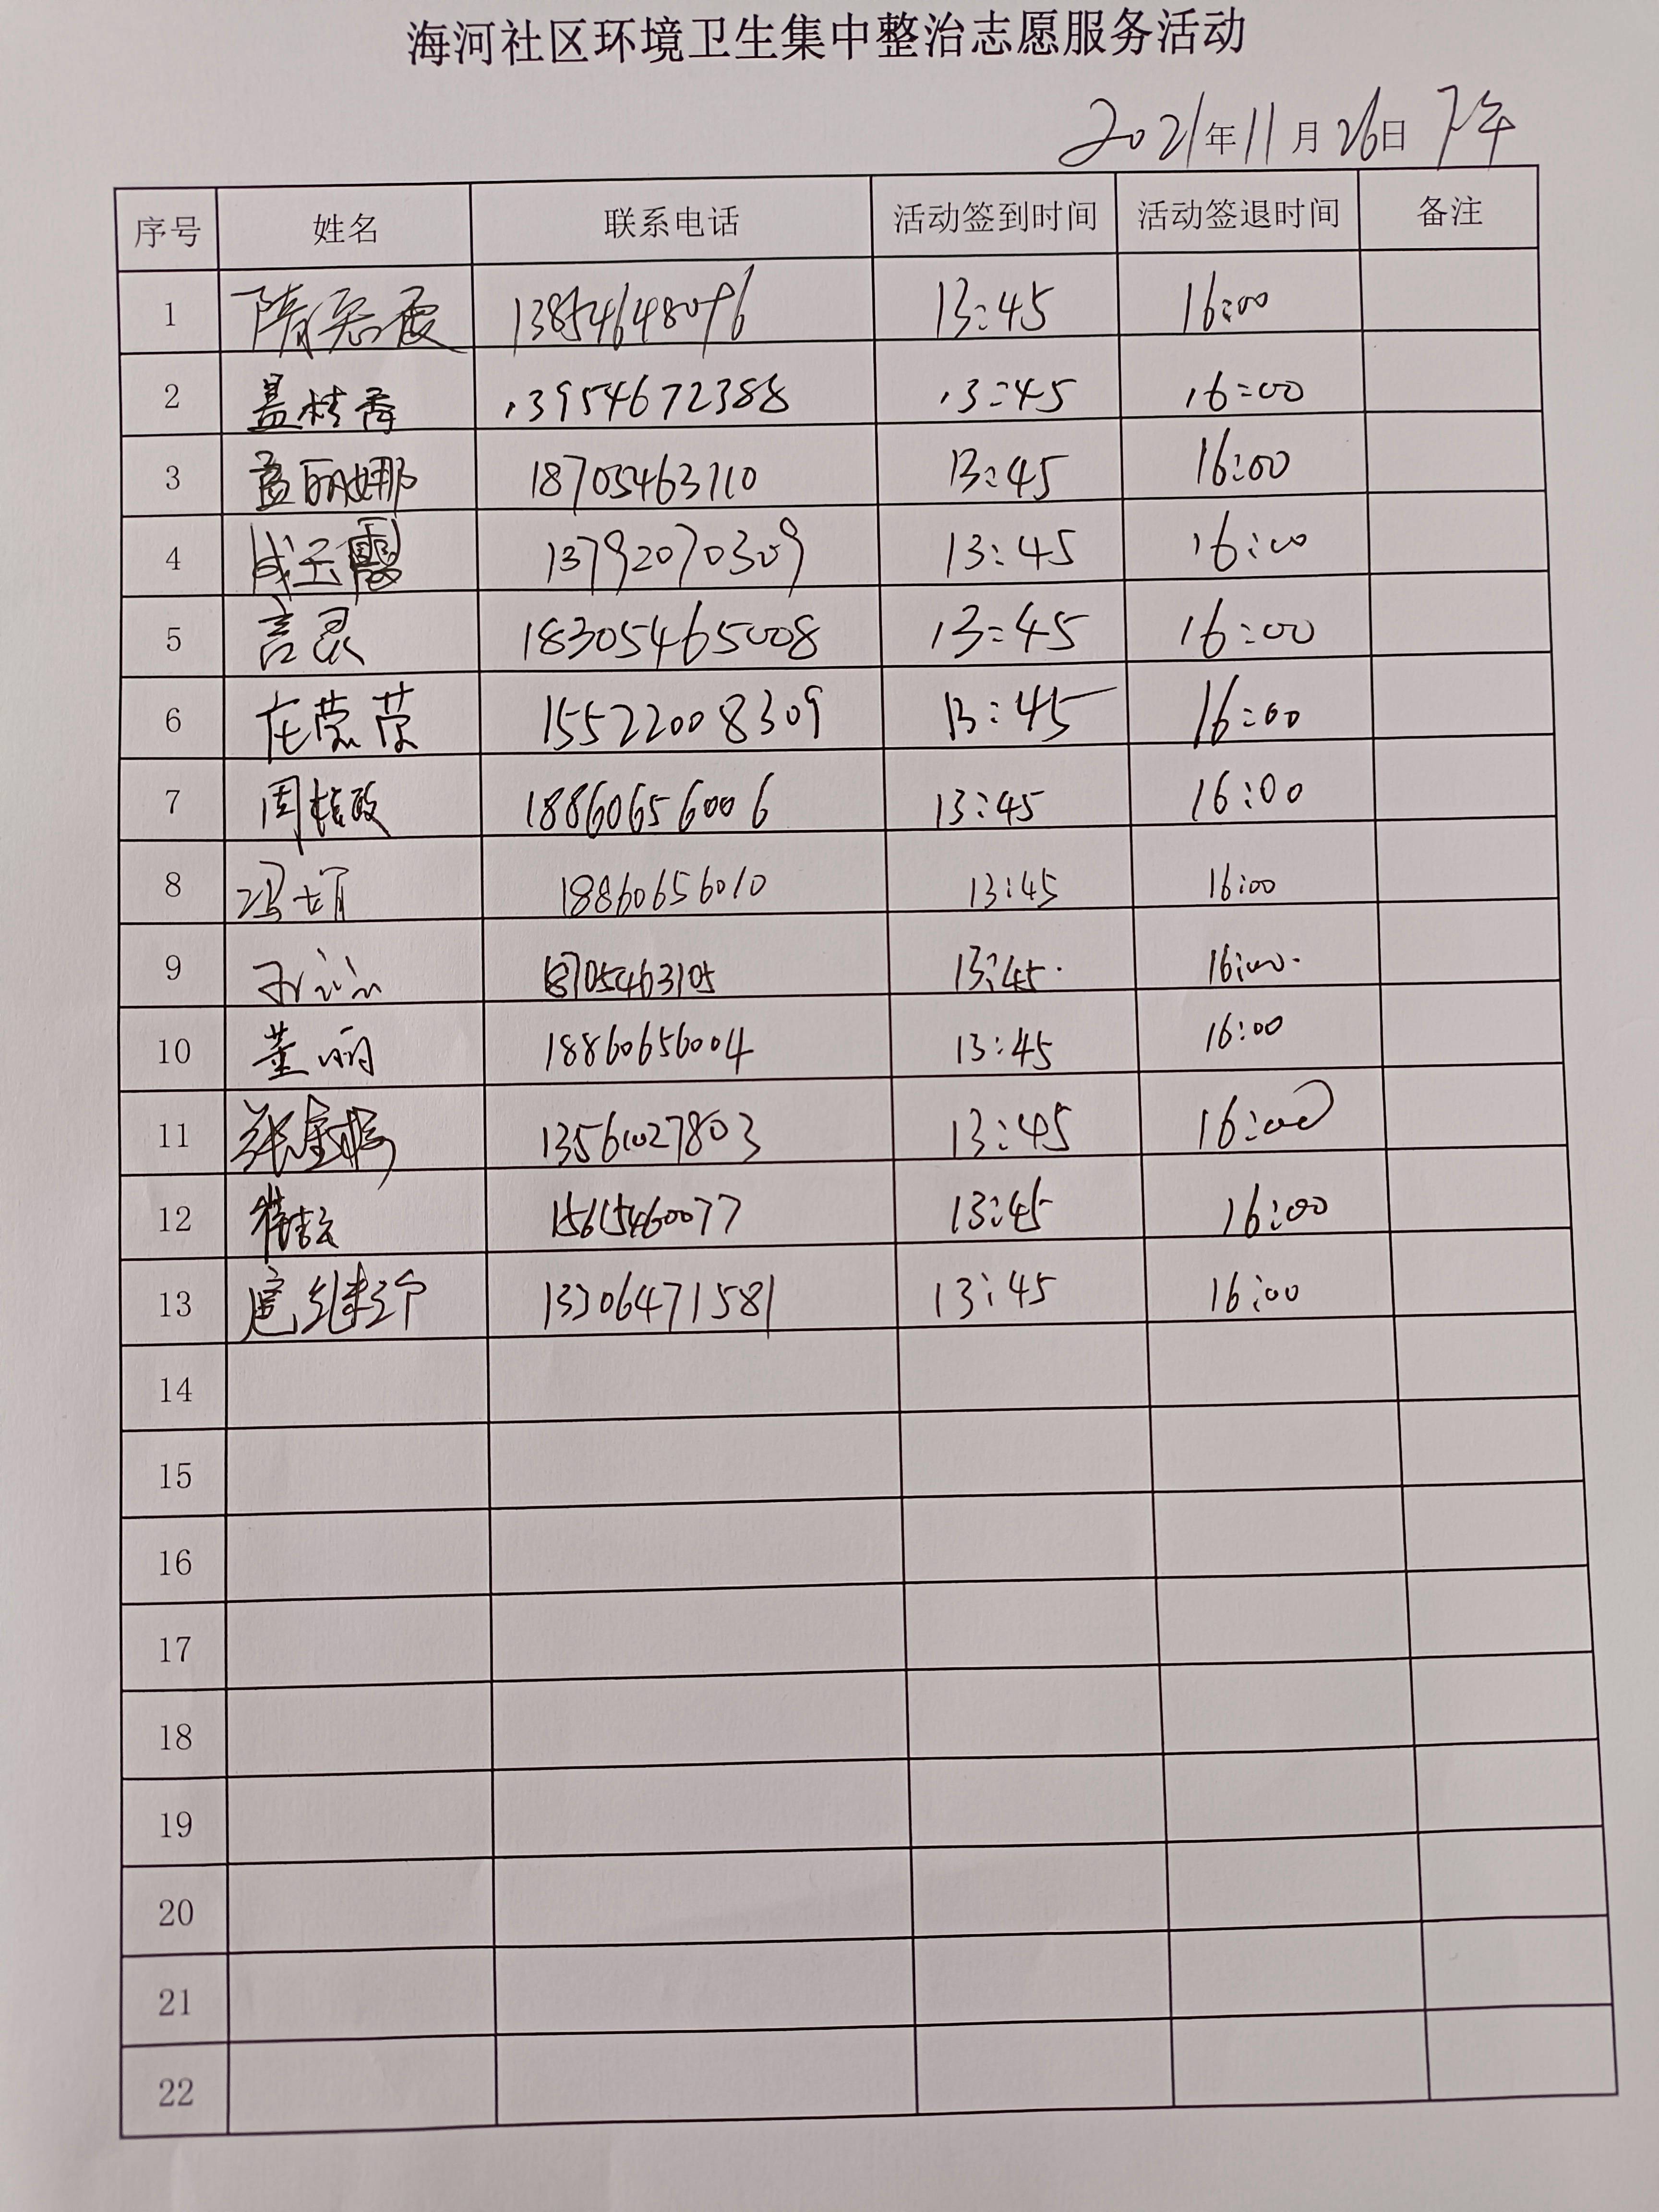 海河社区环境卫生集中整治志愿服务活动
2021年11月26日 下午
序号 姓名 联系电话 活动签到时间 活动签退时间 备注
1 13854648096 13:45 16:00
2 盖桂香 13954672388 13:45 16:00
3 孟丽娜 18705463110 13:45 16:00
4 成玉霞 13792070309 13:45 16:00
5 18305465008 13:45 16:00
6 15522008309 13:45 16:00
7 18860656006 13:45 16:00
8 冯娟 18860656010 13:45 16:00
9 18705463105 13:45 16:00
10 董丽 18860656004 13:45 16:00
11 13561027803 13:45 16:00
12 15615460077 13:45 16:00
13 13306471581 13:45 16:00
14
15
16
17
18
19
20
21
22